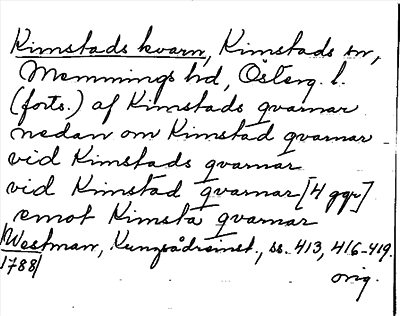 Kimstads kvarn, Kimstads sn,
Memmings hd, Österg. l.
(forts.) af Kimstads qvarnar
nedan om Kimstad qvarnar
vid Kimstads qvarnar
vid Kimstad qvarnar [4 ggr]
emot Kimsta qvarnar
Westman, Kungsådreinst., ss. 413, 416-419.
1788 orig.